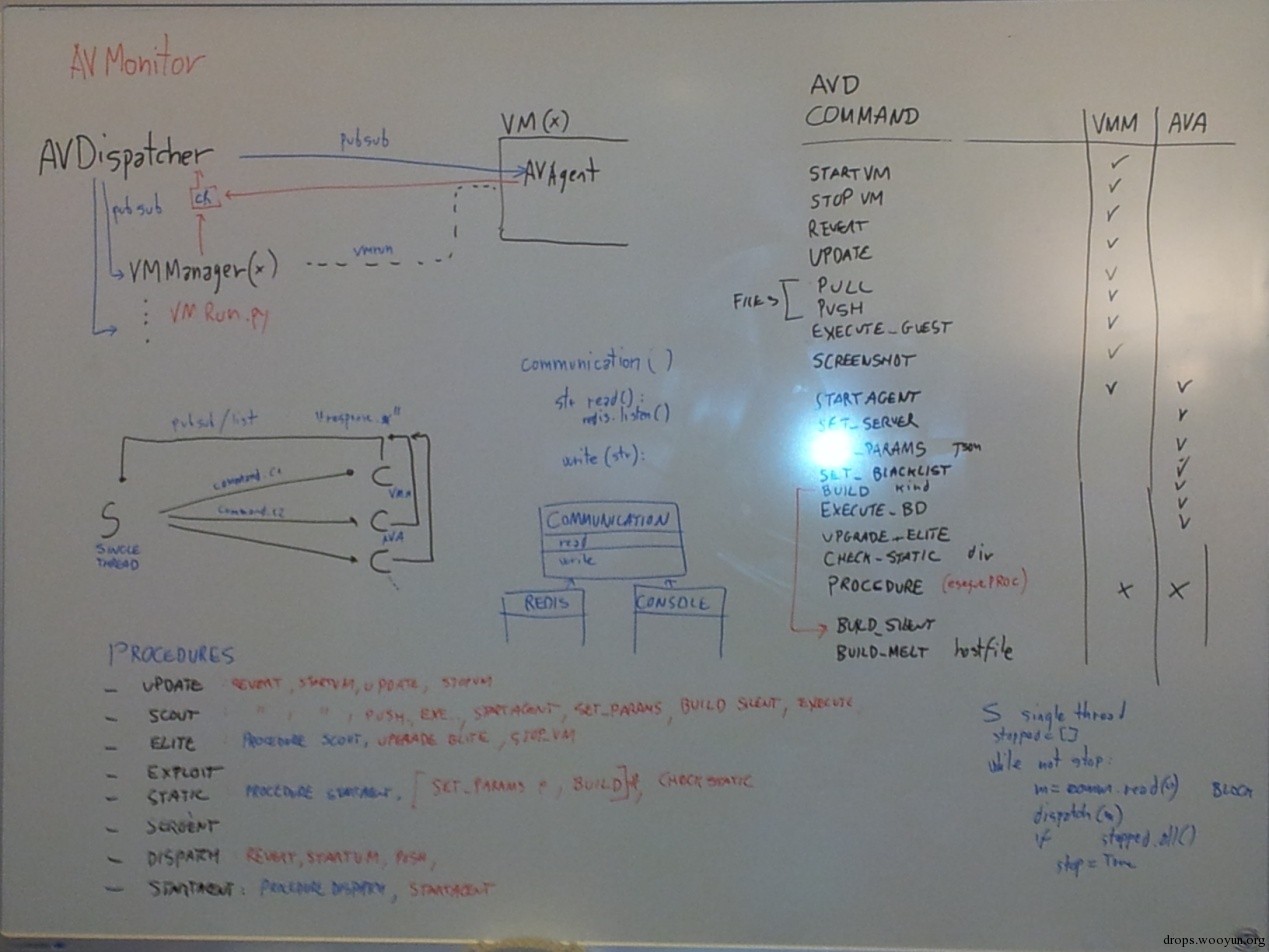 AV Monitor
AVDispatcher
pubsub
VM(x)
AVAgent
ch
pubsub
VMManager(x)
vmrun
VMRun.py
communication()
str read():
redis.listen()
write(str):
pubsub/list
command.c1
command.c2
S
SINGLE
THREAD
C
VMM
C
AVA
C
COMMUNICATION
read
write
REDIS
CONSOLE
AVD
COMMAND
VMM
AVA
START VM
STOP VM
REVERT
UPDATE
FILES
PULL
PUSH
EXECUTE_GUEST
SCREENSHOT
START AGENT
SET_SERVER
_PARAMS Json
SET_BLACKLIST
BUILD kind
EXECUTE_BD
UPGRADE_ELITE
CHECK_STATIC dir
PROCEDURE
BUILD_SILENT
BUILD_MELT hostfile
PROCEDURES
– UPDATE REVERT, STARTVM, UPDATE, STOPVM
– SCOUT " , " , PUSH, EXE., STARTAGENT, SET_PARAMS, BUILD SILENT, EXECUTE
– ELITE PROCEDURE SCOUT, UPGRADE ELITE, STOP VM
– EXPLOIT
– STATIC PROCEDURE STARTAGENT, [SET_PARAMS , BUILD] CHECK STATIC
– SERGENT
– DISPATCH REVERT, STARTVM, PUSH,
– STARTAGENT: PROCEDURE DISPATCH, STARTAGENT
S single thread
stopped = []
while not stop:
m = comm.read() BLOCK
dispatch(m)
if stopped.all()
stop = True
drops.wooyun.org